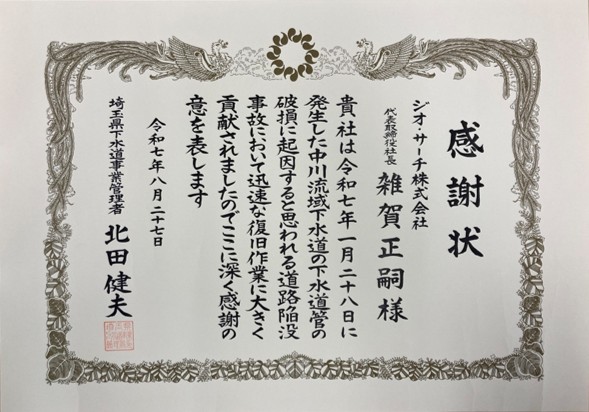 感謝状
ジオ・サーチ株式会社
代表取締役社長 雑賀正嗣様
貴社は令和七年一月二十八日に
発生した中川流域下水道の下水道管の
破損に起因すると思われる道路陥没
事故において迅速な復旧作業に大きく
貢献されましたのでここに深く感謝の
意を表します
令和七年八月二十七日
埼玉県下水道事業管理者 北田健夫